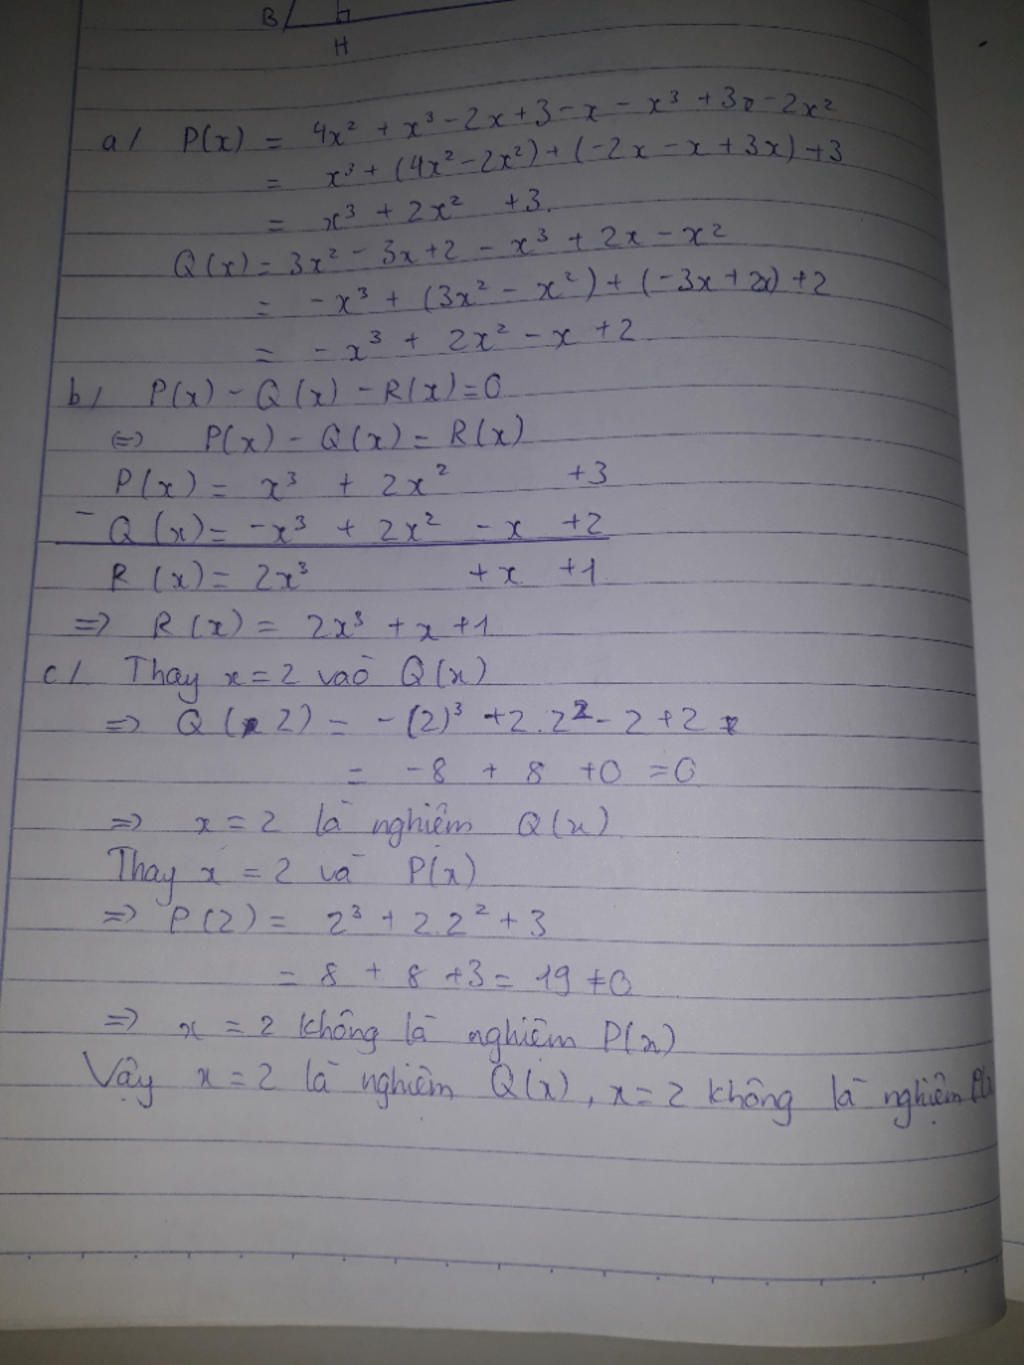 B
H
a/ P(x) = 4x² + x³ - 2x + 3 - x - x³ + 3x - 2x²
= x³ + (4x² - 2x²) + (-2x - x + 3x) + 3
= x³ + 2x² + 3.
Q(x) = 3x² - 3x + 2 - x³ + 2x - x²
= -x³ + (3x² - x²) + (-3x + 2x) + 2
= -x³ + 2x² - x + 2
b/ P(x) - Q(x) - R(x) = 0
⇔ P(x) - Q(x) = R(x)
P(x) = x³ + 2x² + 3
- Q(x) = -x³ + 2x² - x + 2
R(x) = 2x³ + x + 1
⇒ R(x) = 2x³ + x + 1
c/ Thay x = 2 vào Q(x)
⇒ Q(2) = -(2)³ + 2.2² - 2 + 2
= -8 + 8 + 0 = 0
⇒ x = 2 là nghiệm Q(x)
Thay x = 2 và P(x)
⇒ P(2) = 2³ + 2.2² + 3
= 8 + 8 + 3 = 19 ≠ 0
⇒ x = 2 không là nghiệm P(x)
Vậy x = 2 là nghiệm Q(x), x = 2 không là nghiệm P(x